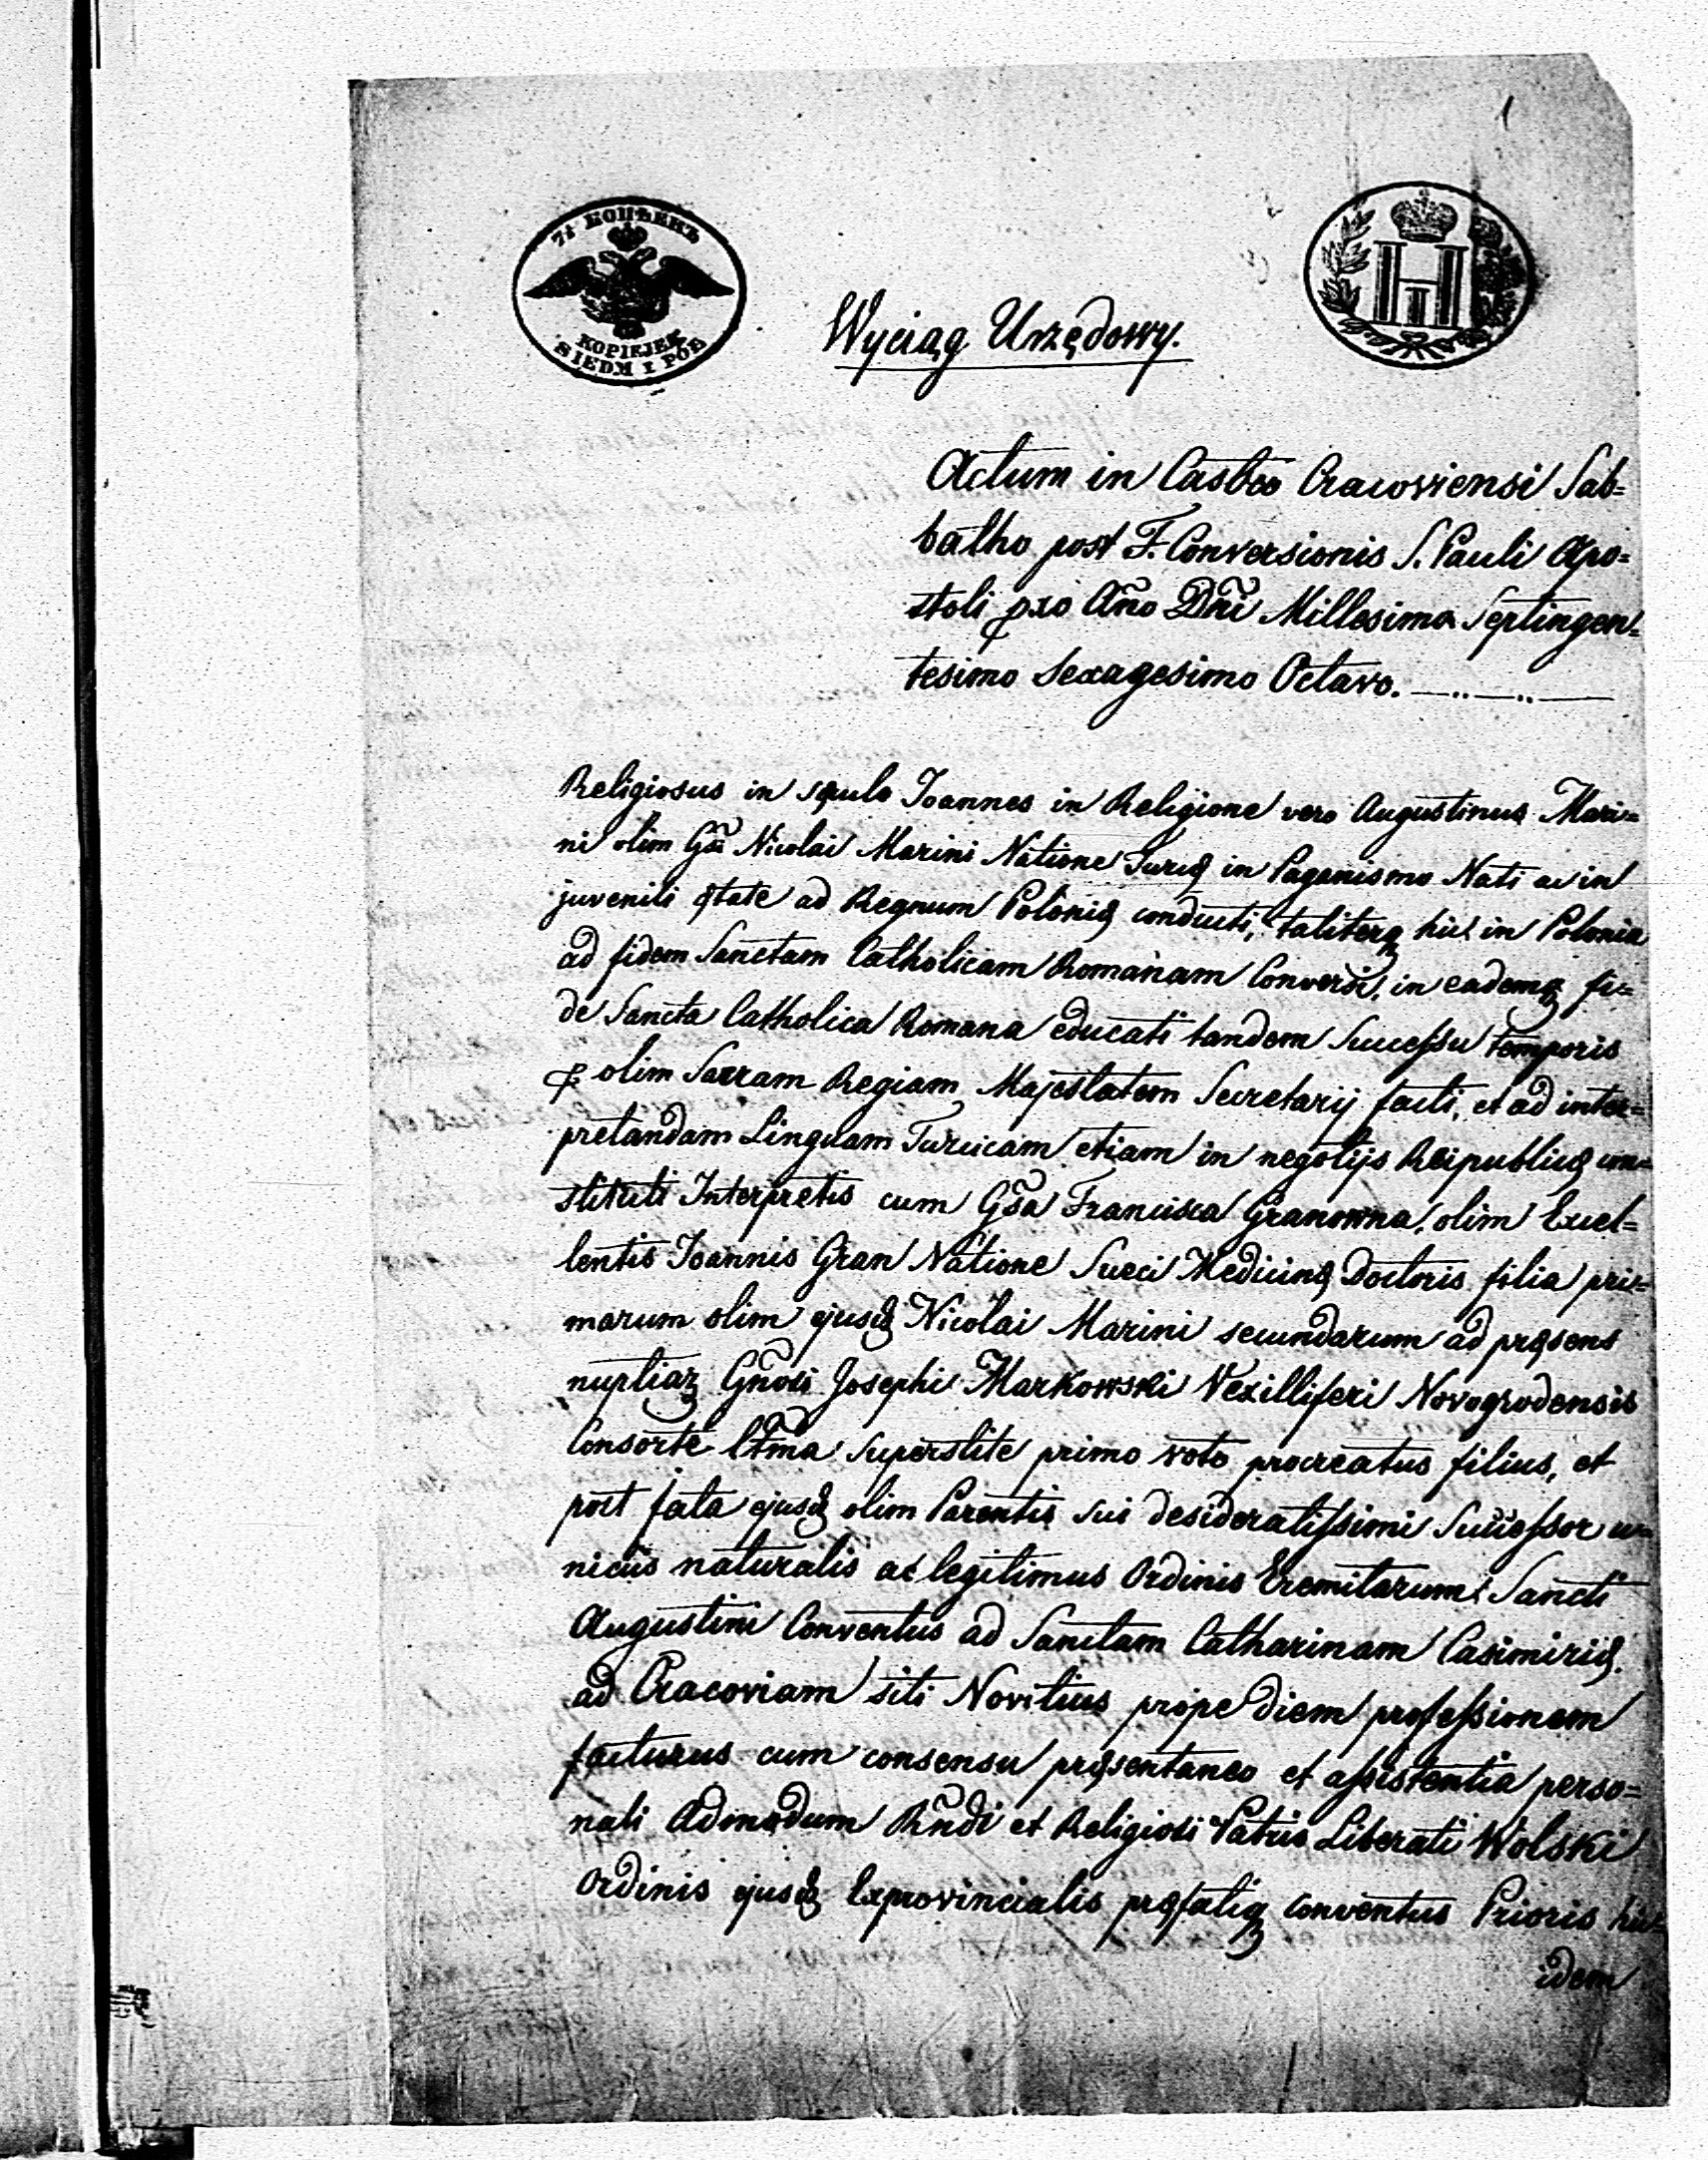 1
7½ КОПѢЕКЪ
KOPIEJEK
SIEDM I PÓŁ
Wyciąg Urzędowy.
Actum in Castro Cracoviensi Sab=
batho post F. Conversionis S. Pauli Apo=
stoli pro Año Dñi Millesimo Septingen=
tesimo Sexagesimo Octavo.
Religiosus in sęculo Joannes in Religione vero Augustinus Mari=
ni olim Gsi Nicolai Marini Natione Turcę in Paganismo Nati ac in
juvenili ętate ad Regnum Polonię conducti, taliterq hic in Polonia
ad fidem Sanctam Catholicam Romanam Conversi, in eademq fi=
de Sancta Catholica Romana educati tandem Successu temporis
p olim Sacram Regiam Majestatem Secretarij facti, et ad inter=
pretandam Linguam Turcicam etiam in negotijs Reipublicę con=
stituti Interpretis cum Gsa Francisca Granowna, olim Excel=
lentis Joannis Gran Natione Sueci Medicinę Doctoris filia pri=
marum olim ejusd Nicolai Marini secundarum ad pręsens
nuptiaz Gñosi Josephi Markowski Vexilliferi Novogrodensis
Consorte Ltma superstite primo voto procreatus filius, et
post fata ejusd olim Parentis sui desideratissimi Successor u=
nicus naturalis ac legitimus Ordinis Eremitarum Sancti
Augustini Conventus ad Sanctam Catharinam Casimirię
ad Cracoviam siti Novitius prope diem professionem
facturus cum consensu pręsentaneo et assistentia perso=
nali Admodum Rñdi et Religiosi Patris Liberati Wolski
Ordinis ejusd Exprovincialis pręfatiq conventus Prioris hic=
idem